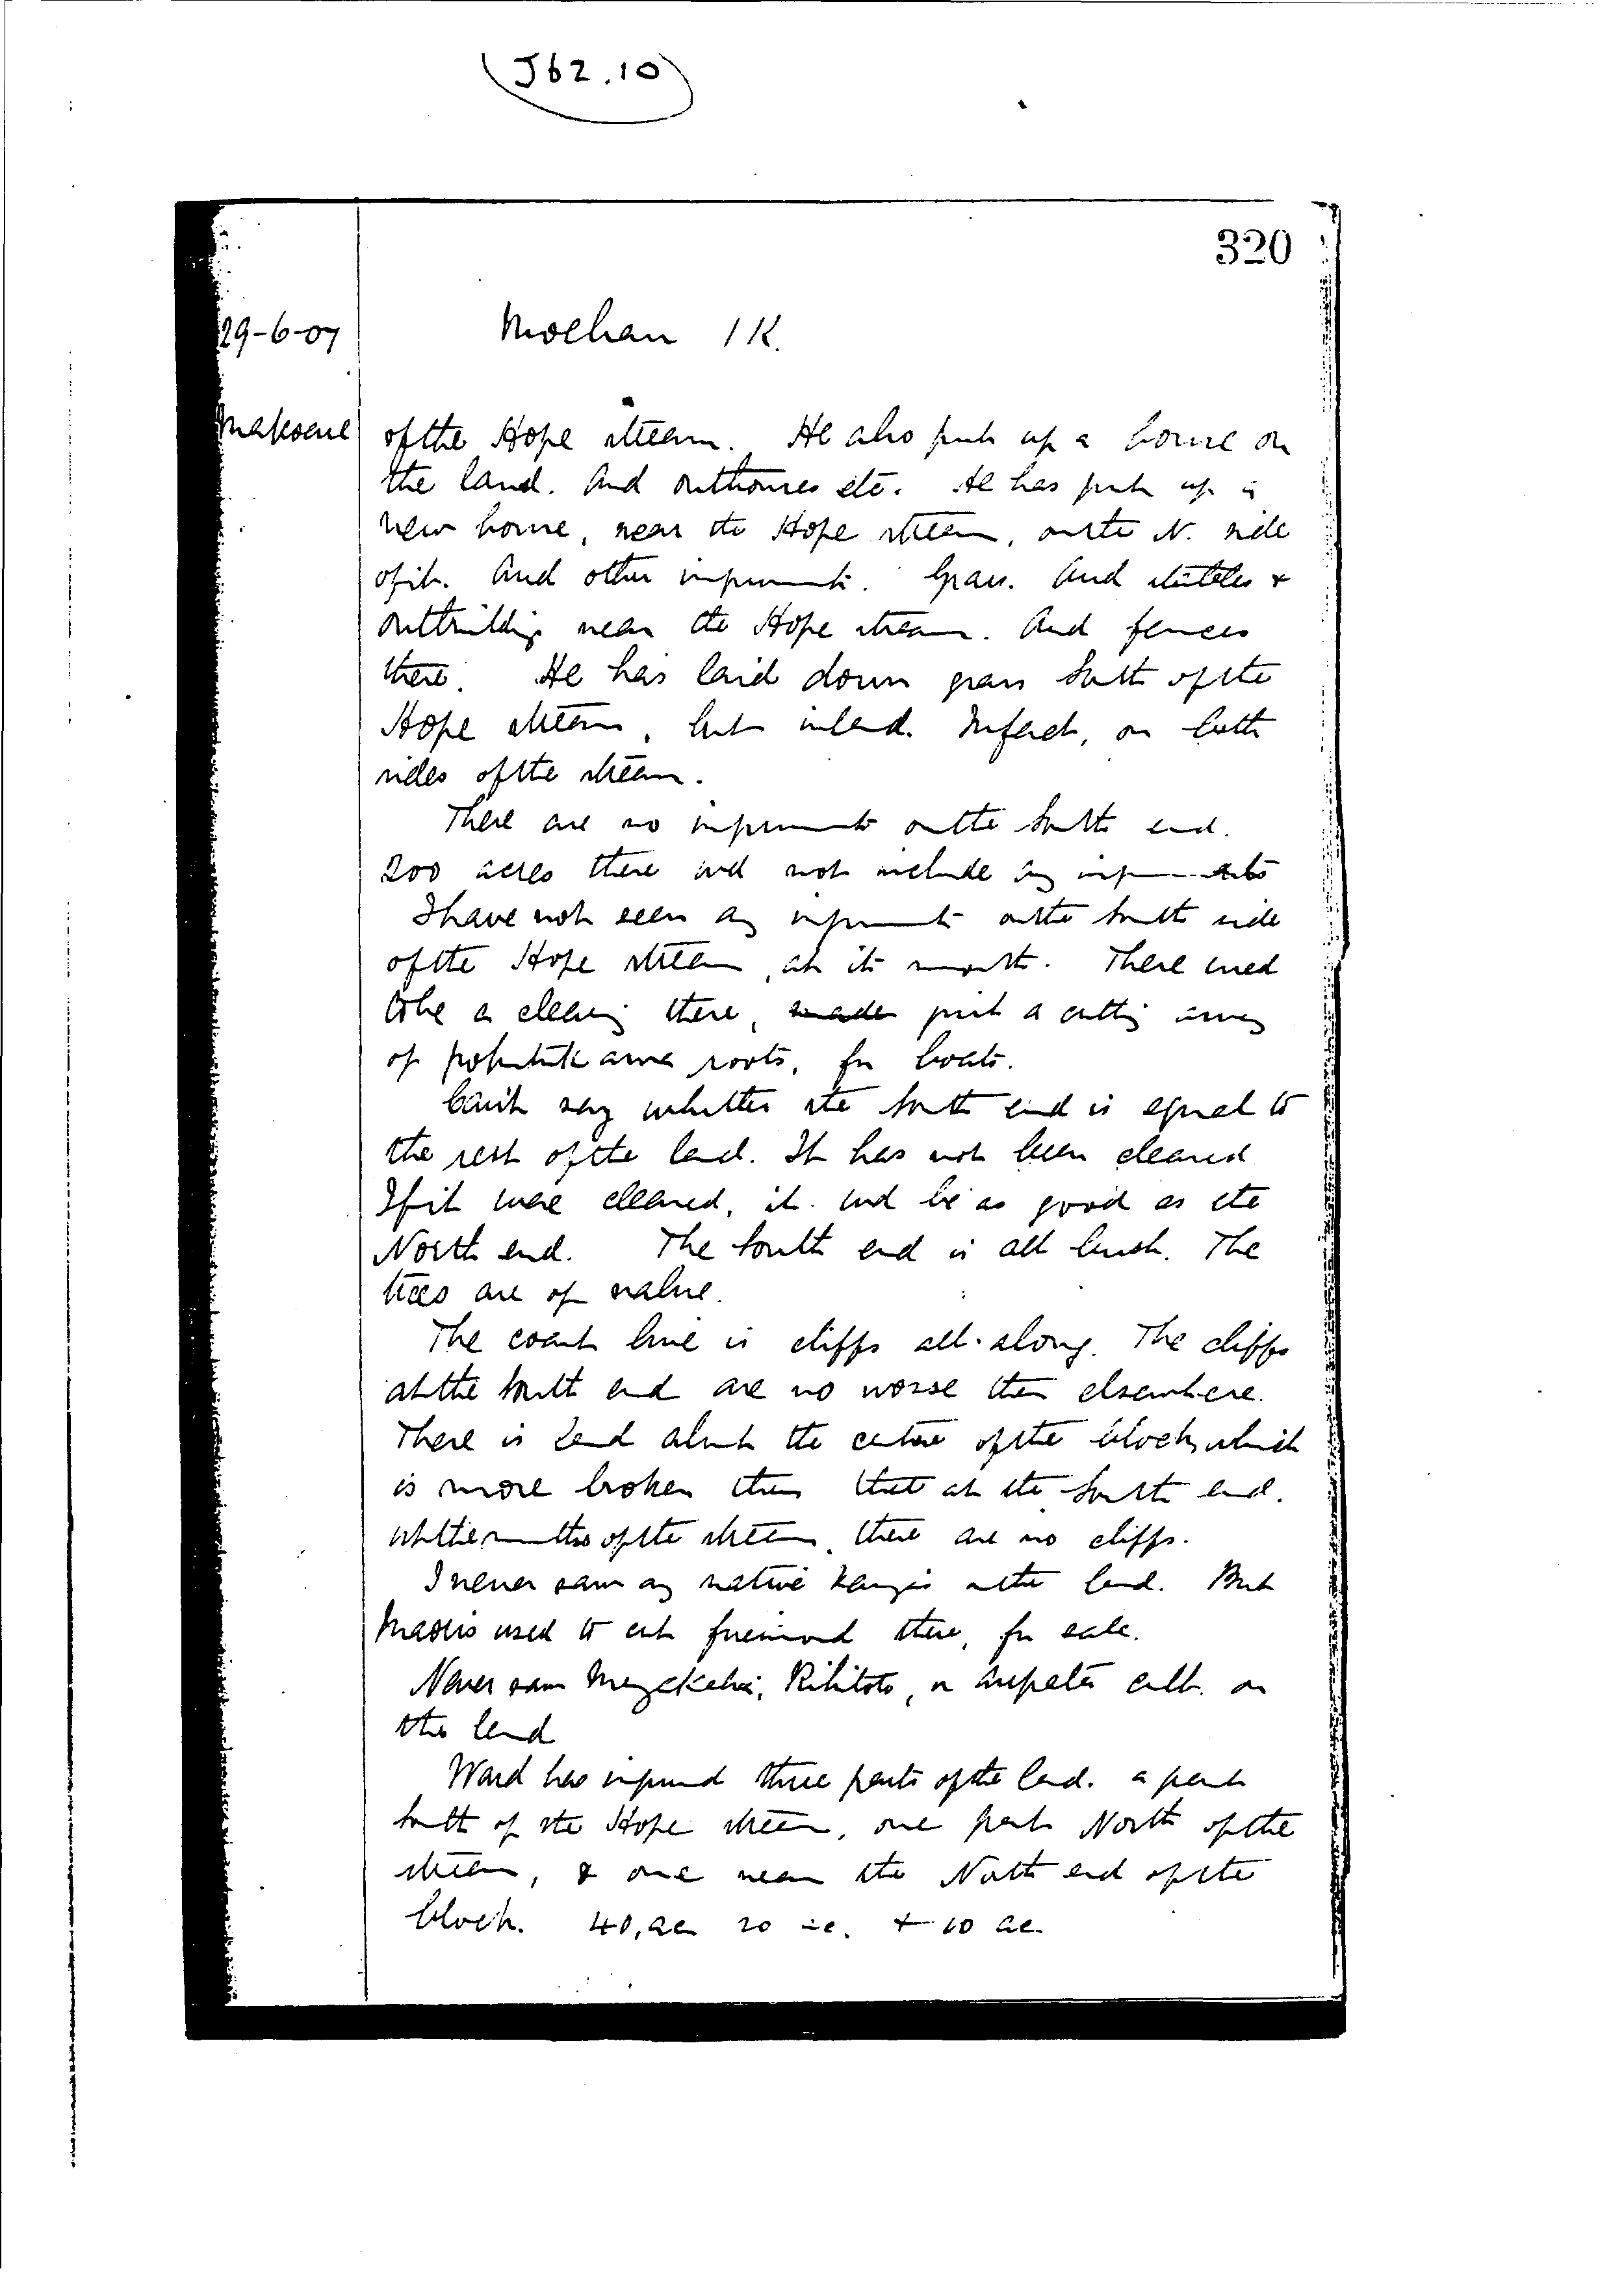 J62.10
320
29-6-07
Moehau 1K.
of the Hope stream. He also put up a house on
the land. And outhouses etc. He has put up a
new house, near the Hope stream, on the N. side
of it. And other improvements. Grass. And stables &
outbuildings near the Hope stream. And fences
there. He has laid down grass South of the
Hope stream, but inland. In fact, on both
sides of the stream.
There are no improvements on the South end.
200 acres there wd not include any improvements
I have not seen any improvements on the South side
of the Hope stream, at its mouth. There used
to be a clearing there, made just a cutting away
of pohutukawa roots, for boats.
Can't say whether the South end is equal to
the rest of the land. It has not been cleared
If it were cleared, it wd be as good as the
North end. The South end is all bush. The
trees are of value.
The coast line is cliffs all along. The cliffs
at the South end are no worse than elsewhere.
There is land about the centre of the block, which
is more broken than that at the South end.
At the mouths of the stream, there are no cliffs.
I never saw any native kaingas on the land. But
Maoris used to cut firewood there, for sale.
Never saw Rihitoto, or cult. on
the land
Ward has improved three parts of the land. a part
South of the Hope stream, one part North of the
stream, & one near the North end of the
block. 40, ac 20 ac. + 10 ac.